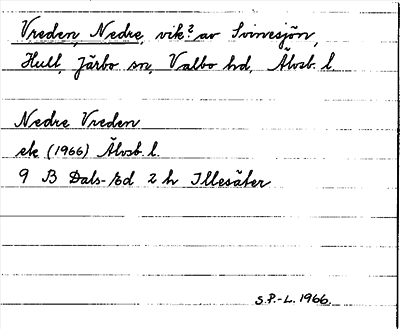 Vreden, Nedre, vik? av Svinesjön,
Hult, Järbo sn, Valbo hd, Älvsb. l.
Nedre Vreden
ek (1966) Älvsb. l.
9 B Dals-Ed 2 h Illesäter
S.P.-L. 1966.